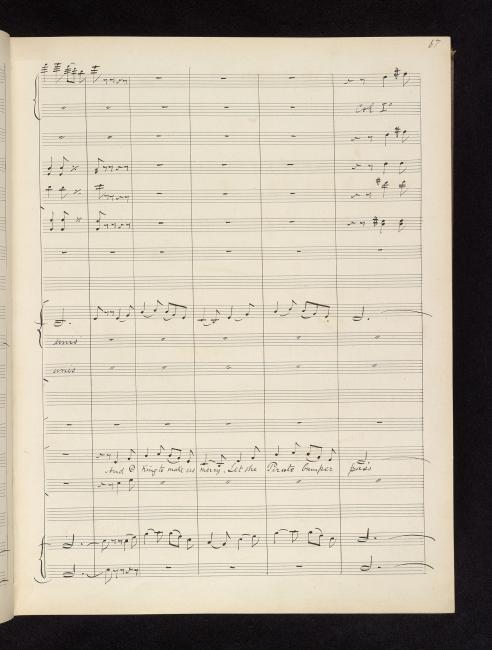 67
Col I°
unis
unis
And to make us merry, Let the Pirate bumper pass